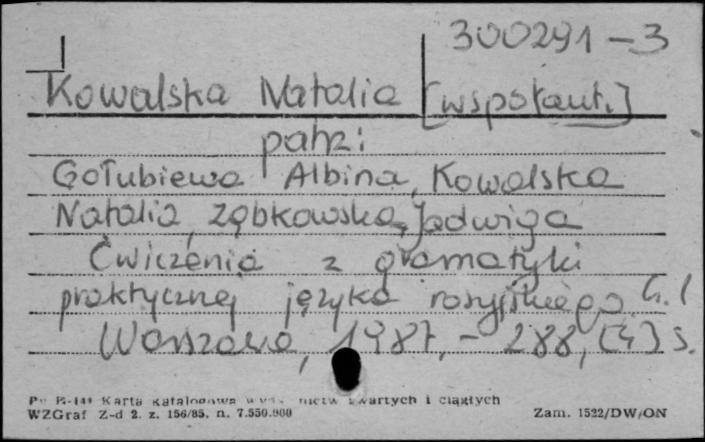 300291-3
Kowalska Natalia [współaut.]
patrz:
Gołubiewa Albina, Kowalska
Natalia, Ząbkowska Jadwiga
Ćwiczenia z gramatyki
praktycznej języka rosyjskiego. Cz. 1
Warszawa, 1987. - 288, [4] s.
Pu B-141 Karta katalogowa wyd. zwartych i ciągłych
WZGraf Z-d 2. z. 156/85. n. 7.550.000 Zam. 1522/DW/ON